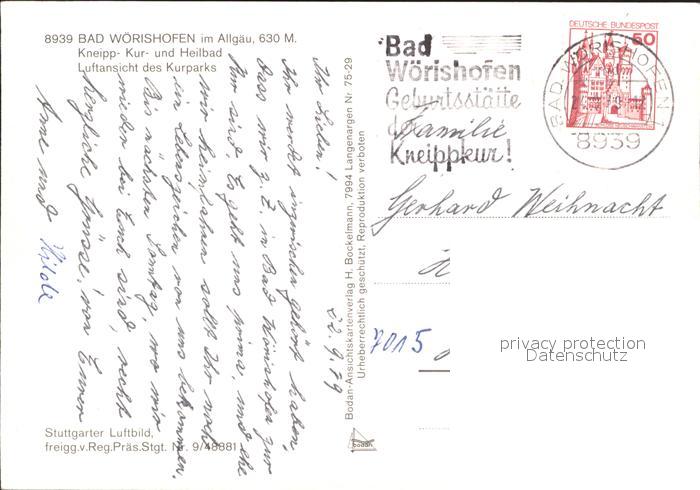 8939 BAD WÖRISHOFEN im Allgäu, 630 M.
Kneipp- Kur- und Heilbad
Luftansicht des Kurparks
22.9.79
Ihr Lieben!
Ihr werdet inzwischen gehört haben,
dass wir z. Z. in Bad Wörishofen zur
Kur sind. Es geht uns prima, und ehe
wir heimfahren sollt Ihr noch
ein Lebenszeichen von uns bekommen.
Bis nächsten Sonntag, wo wir
wieder bei Euch sind, recht
herzliche Grüsse, von Euren
Arne und Hilde
Stuttgarter Luftbild,
freigg.v.Reg.Präs.Stgt. Nr. 9/48881
Bodan-Ansichtskartenverlag H. Bockelmann, 7994 Langenargen Nr. 75-29
Urheberrechtlich geschützt, Reproduktion verboten
bodan
Bad
Wörishofen
Geburtsstätte
der
Kneippkur!
DEUTSCHE BUNDESPOST
50
BAD WÖRISHOFEN 1
8939
Familie
Gerhard Weihnacht
7015
privacy protection
Datenschutz